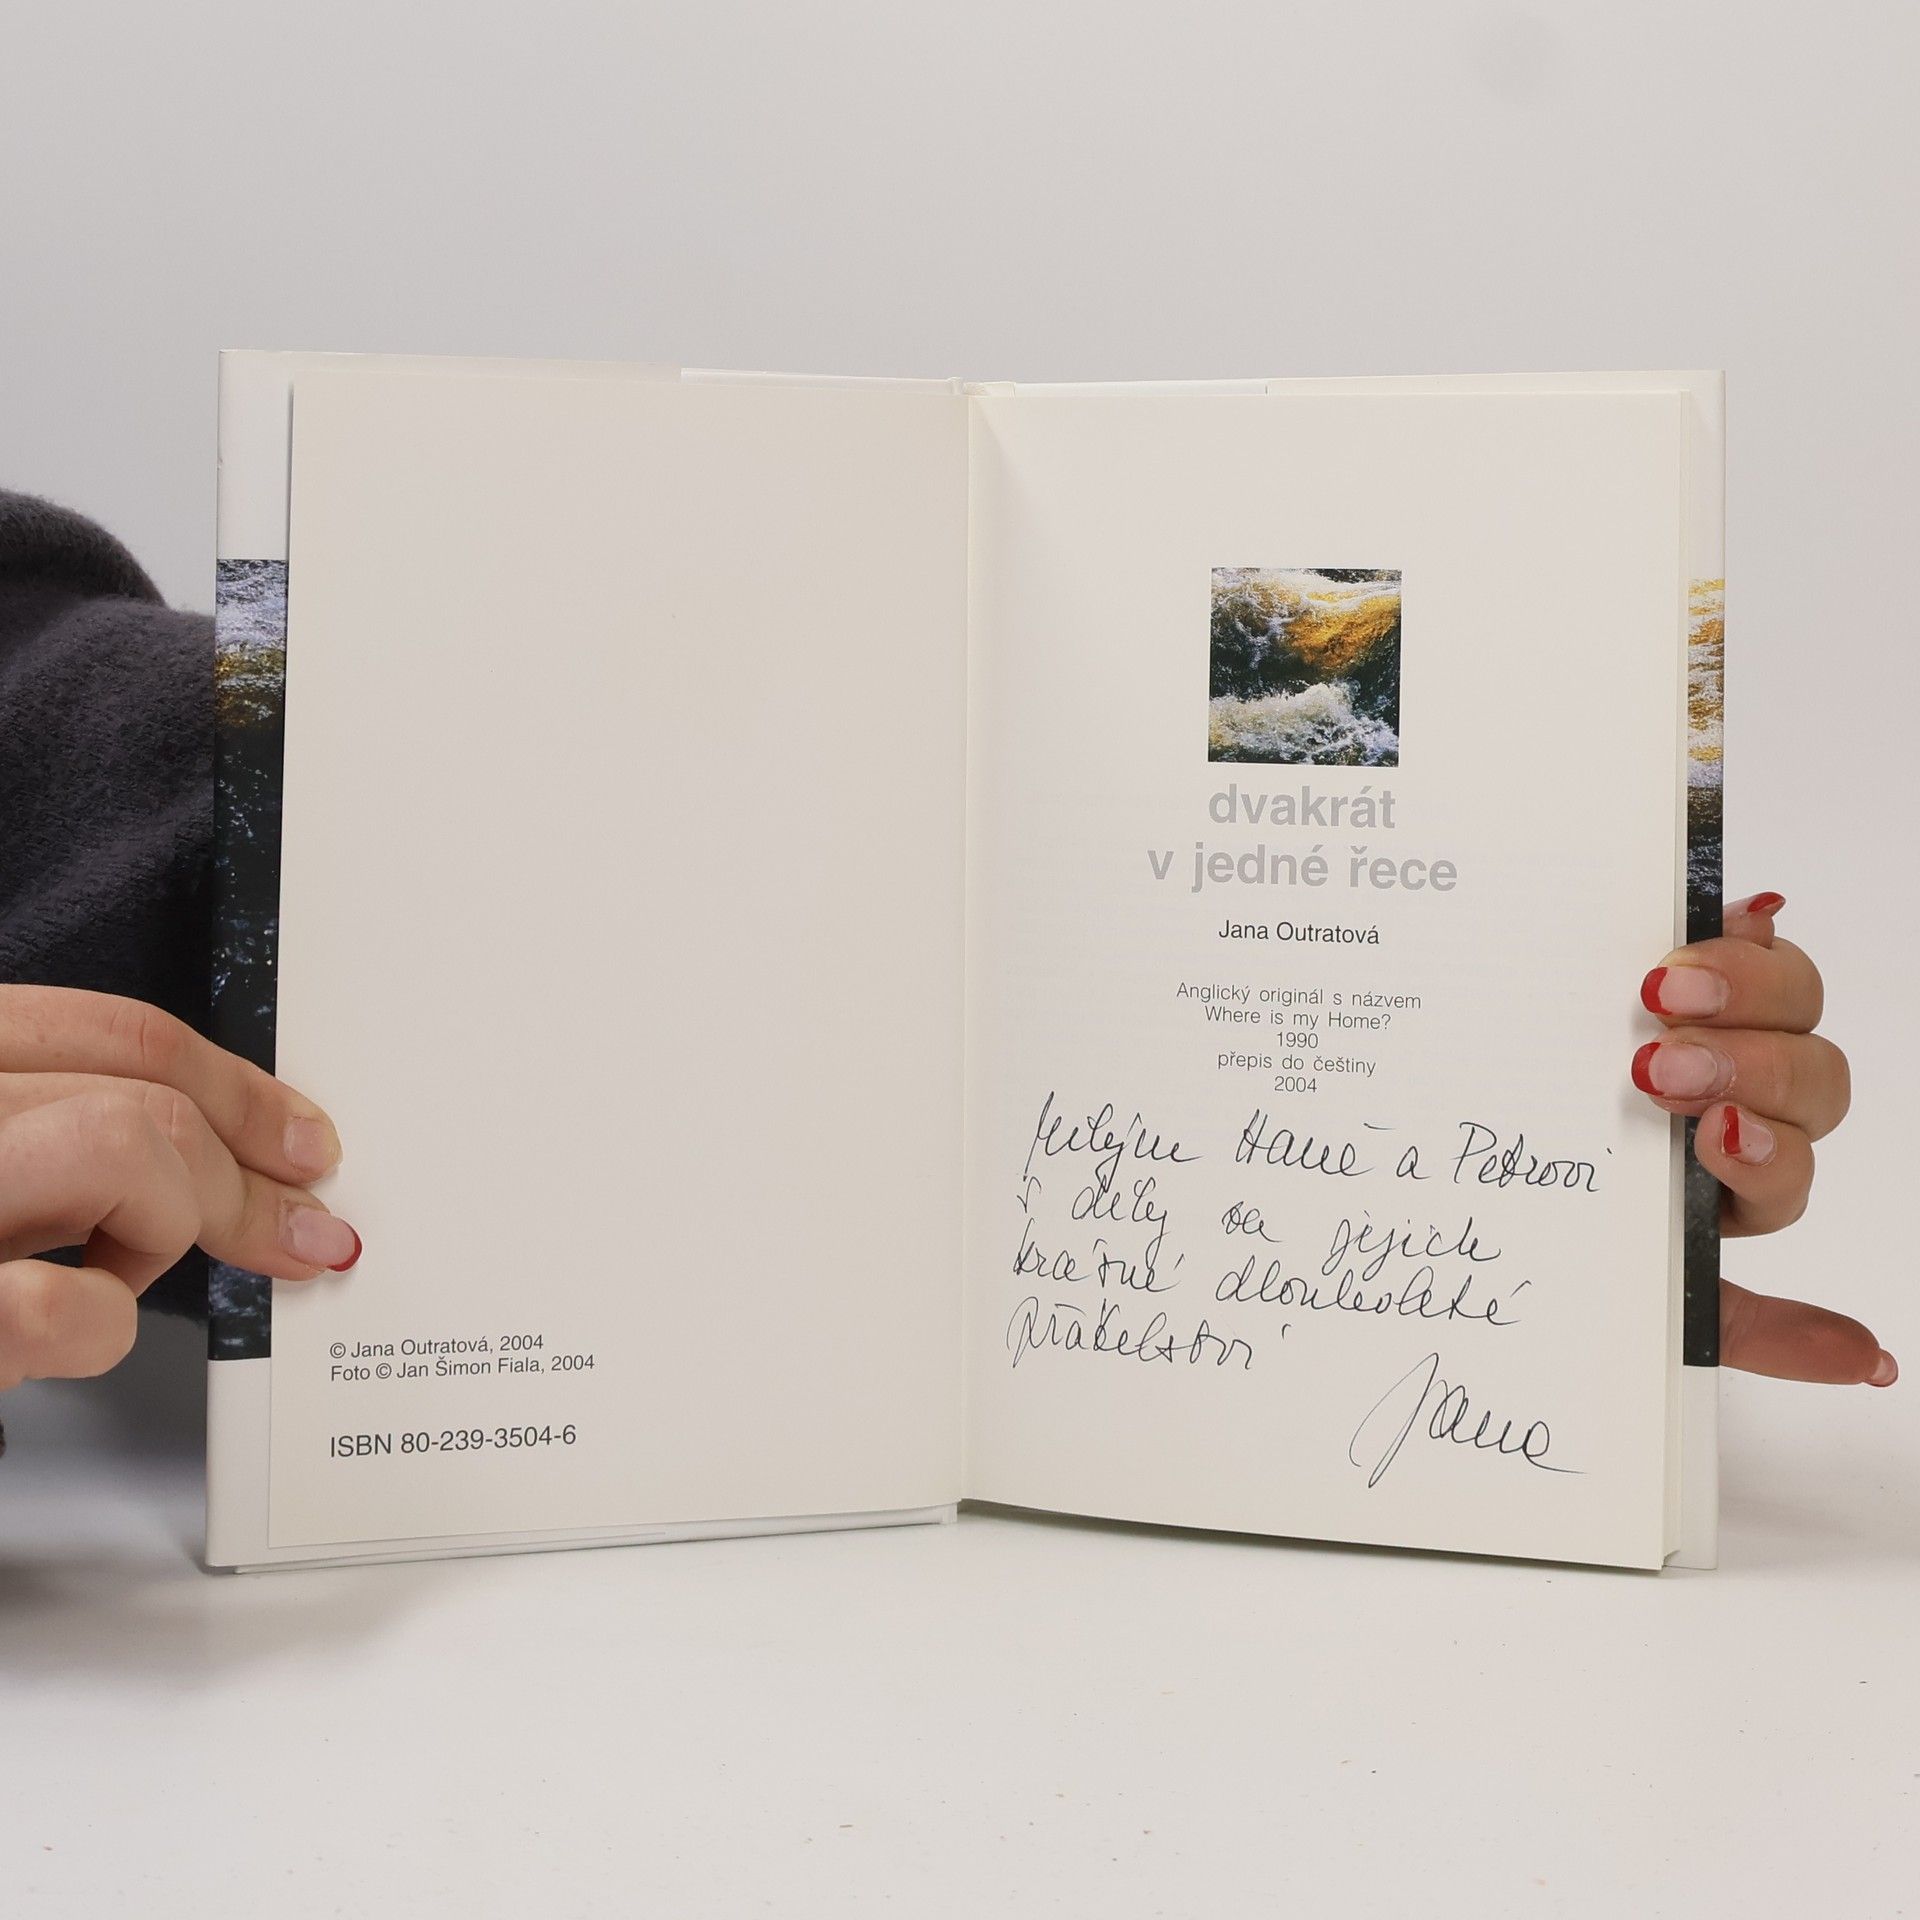 © Jana Outratová, 2004
Foto © Jan Šimon Fiala, 2004
ISBN 80-239-3504-6
dvakrát
v jedné řece
Jana Outratová
Anglický originál s názvem
Where is my Home?
1990
přepis do češtiny
2004
Milým Haně a Petrovi
s díky za jejich
krásné dlouholeté
přátelství
Jana